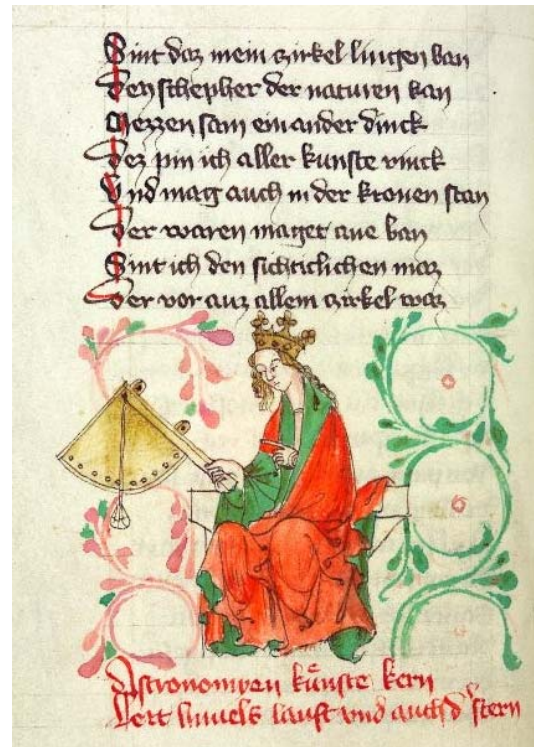 Sint daz mein zirkel lingen ban
Den schepher der naturen kan
Mezzen sam ein ander dinck
Dez pin ich aller kunste rinck
Und mag auch in der kronen stan
Der waren maget ane ban
Sint ich den sichticlichen maz
Der vor auz allem zirkel waz
Astronomyen kůnste kern
Lert himels lauft vnd auch d' stern